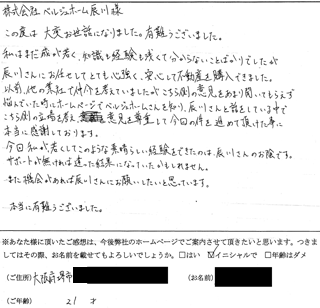 株式会社 ベルジュホーム 辰川様
この度は 大変お世話になりました。有難うございました。
私はまだ歳が若く、知識も経験も浅くて分からないことばかりでしたが
辰川さんにお任せしてとても心強く、安心して不動産を購入できました。
以前、他の業社で仲介を考えていましたがこちら側の意見をあまり聞いてもらえず
悩んでいた時にホームページでベルジュホームさんを知り、辰川さんと話をしている中で
こちら側の立場を考え、意見を尊重して今回の件を進めて頂けた事に
本当に感謝しております。
今回 私が若くしてこのような素晴らしい経験をできたのは、辰川さんのお陰です。
サポートが無ければ違った結果になっていたかもしれません。
また機会があれば辰川さんにお願いしたいと思っています。
本当に有難うございました。
※あなた様に頂いたご感想は、今後弊社のホームページでご案内させて頂きたいと思います。つきま
してはその際、お名前を載せてもよろしいでしょうか。□はい ☑イニシャルで □年齢はダメ
(ご住所) 大阪府堺市 (お名前)
(ご年齢) 21 才